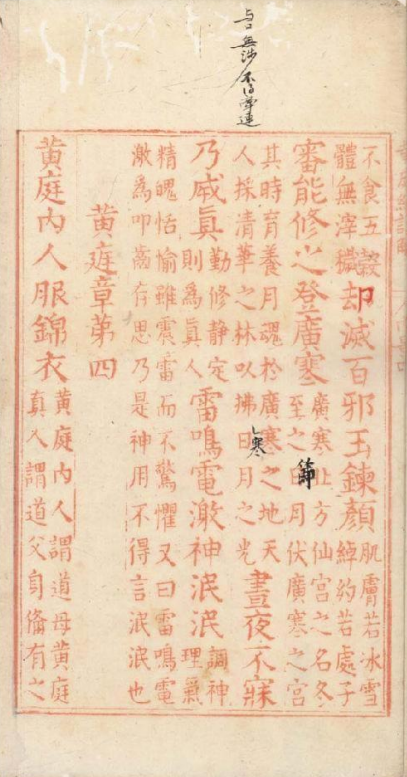 与上無涉不得牽連
不食五穀體無滓穢却滅百邪玉鍊顏肌膚若冰雪綽約若處子
審能修之登廣寒廣寒北方仙宮之名冬至之日月伏廣寒之宮
其時育養月魂於廣寒之地天人採清華之林以拂日月之光晝夜不寐
寒
乃咸真勤修静定則為真人雷鳴電激神泯泯調神理氣
精魄恬愉雖震雷而不驚懼又曰雷鳴電激為叩齒存思乃是神用不得言泯泯也
黄庭章第四
黄庭内人服錦衣黄庭内人謂道母黄庭真人謂道父身俻有之